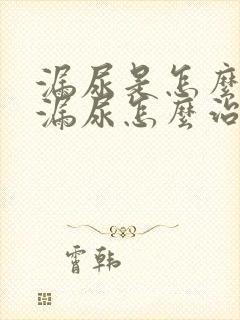 漏尿是怎麼
漏尿怎麼治
霄韩